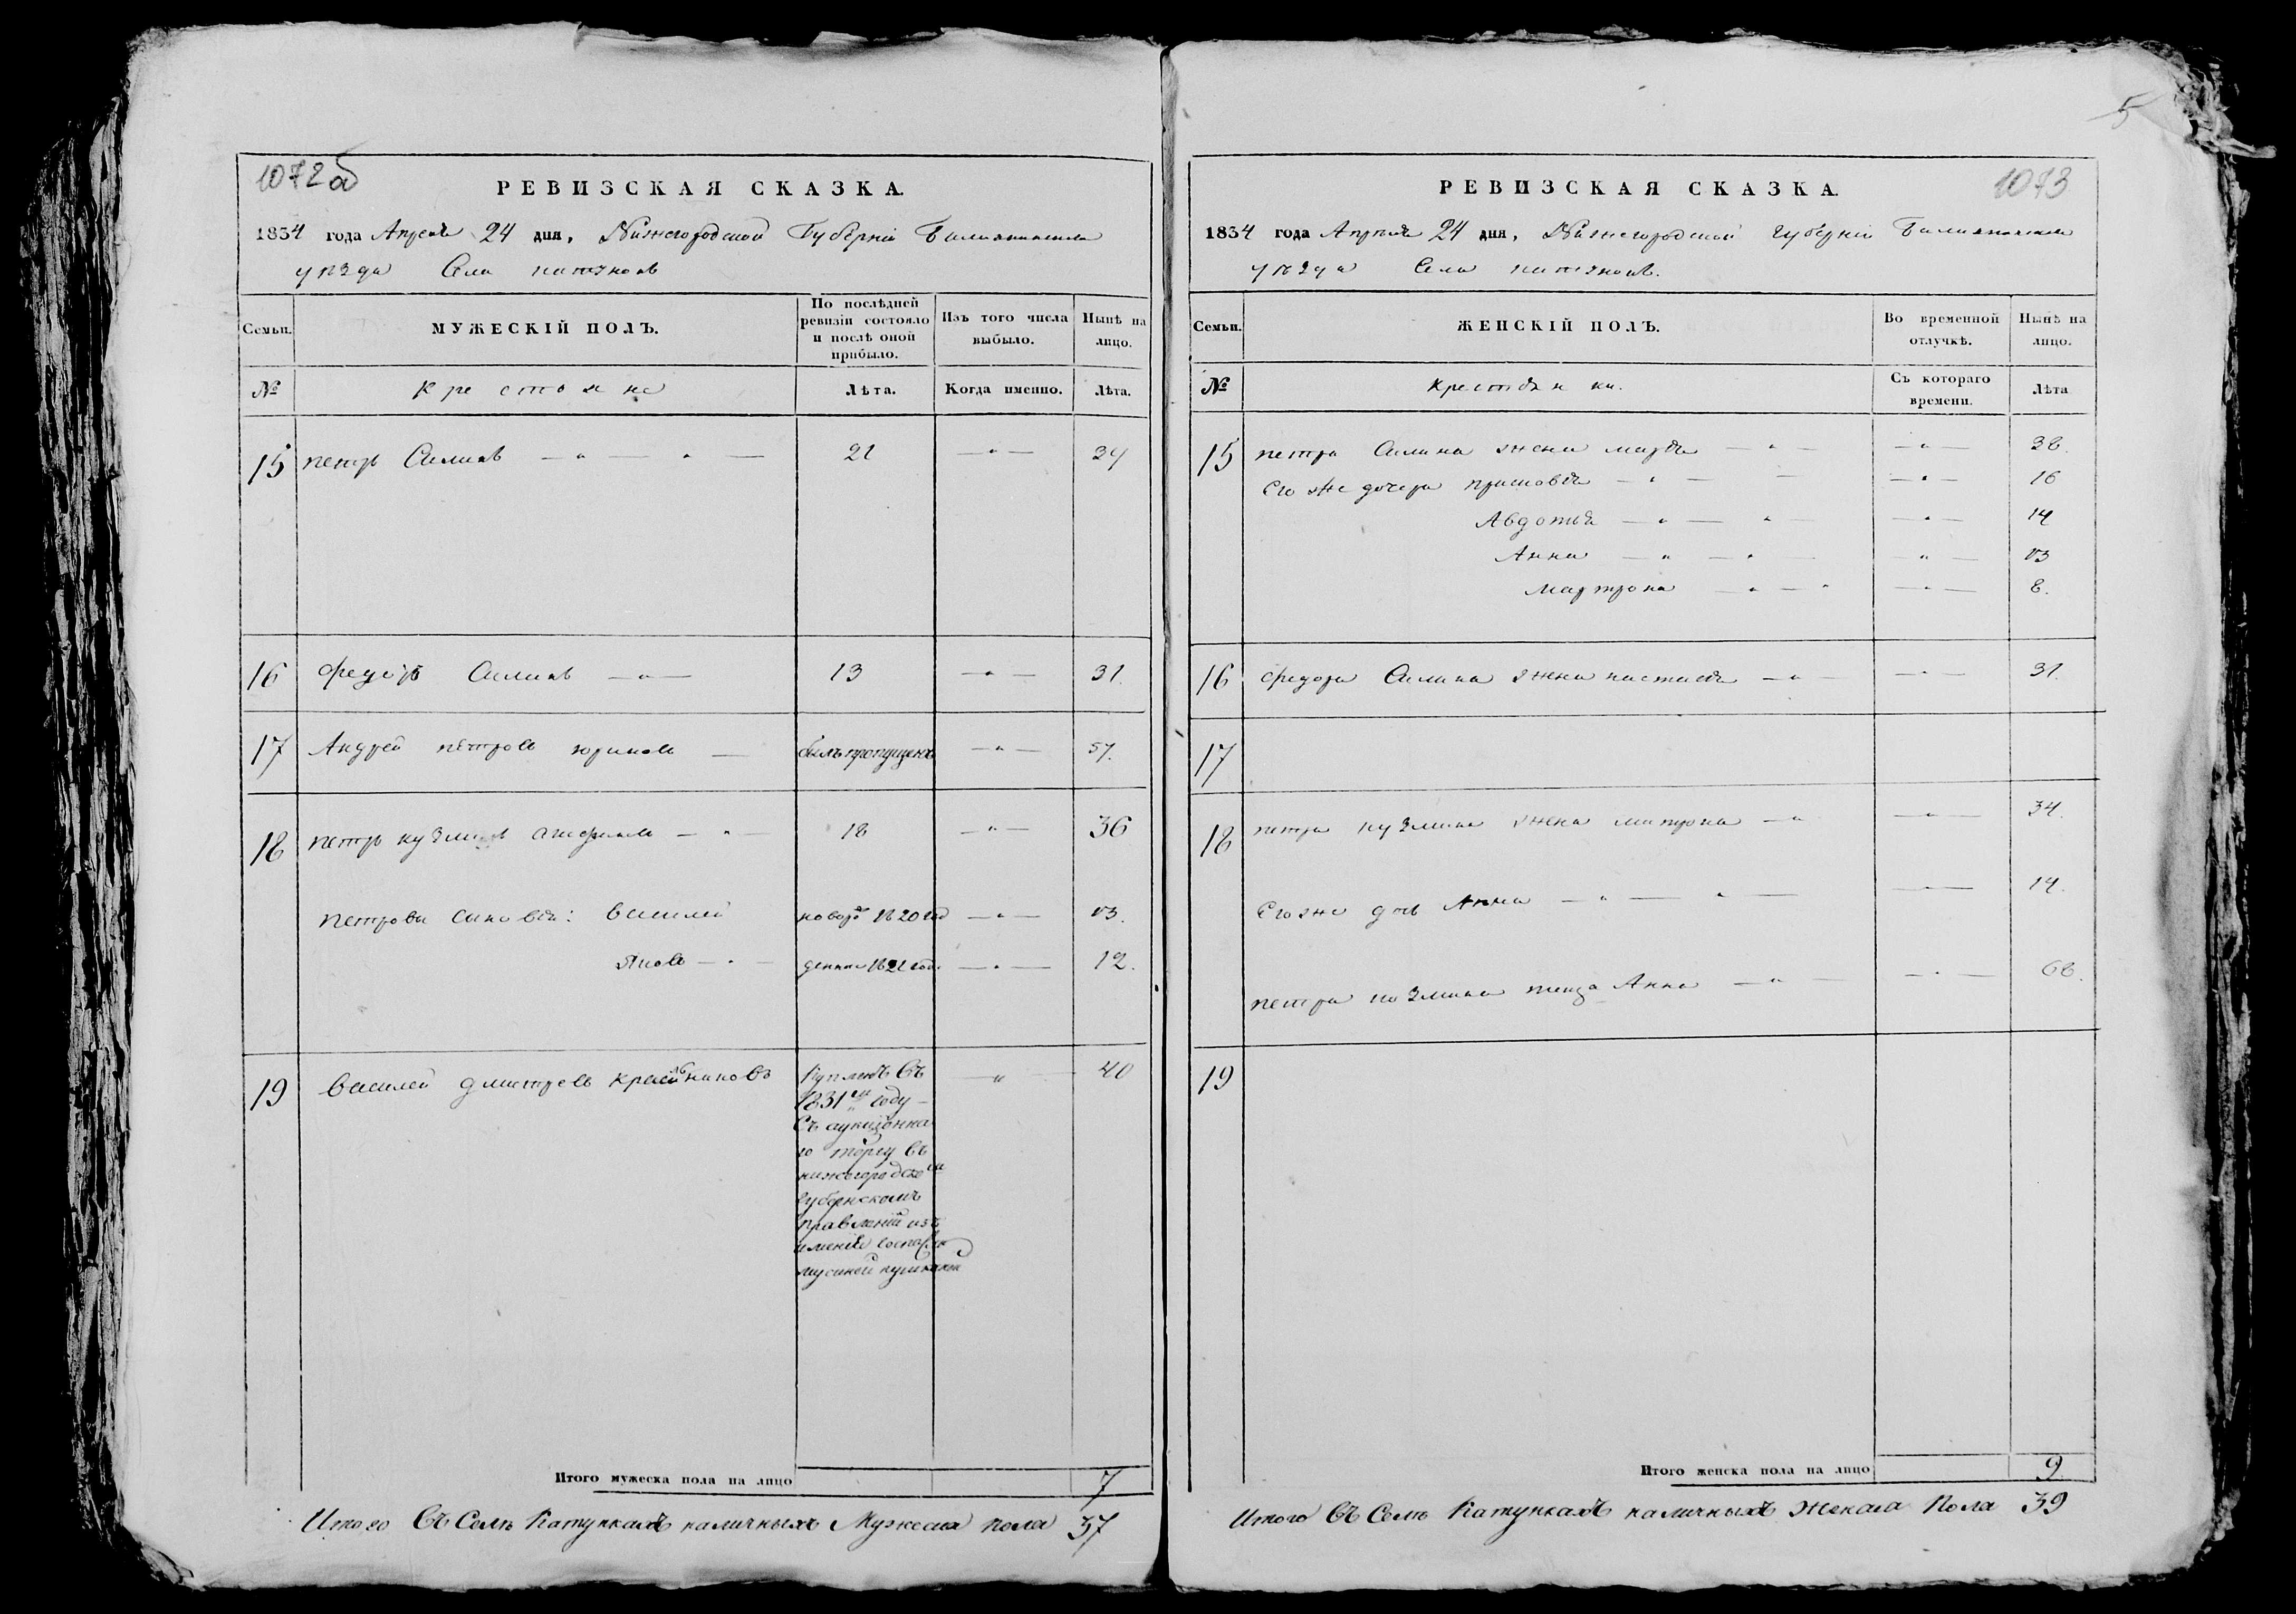 1072 об
РЕВИЗСКАЯ СКАЗКА.
1834 года Апреля 24 дня, Нижегородской Губерніи Балахнинскаго
уезда Села катунокъ
Семьи.
МУЖЕСКІЙ ПОЛЪ.
По послѣдней ревизіи состояло и послѣ оной прибыло.
Изъ того числа выбыло.
Нынѣ на лицо.
№
крестьяне
Лѣта.
Когда именно.
Лѣта.
15 петръ Силинъ — „ — „ — 21 — „ — 39
16 федоръ Силинъ — „ — 13 — „ — 31.
17 Андрей петровъ — былъ пропущенъ — „ — 57.
18 петръ кузминъ — „ — 18 — „ — 36
петровы сыновья: василей новоро 1820 год — „ — 13.
яковъ — „ — денные 1821 год. — „ — 12.
19 василей дмитревъ — „ — 40
Купленъ Въ
1831м году —
Съ аукціонна
го торгу Въ
нижегородском
Губернскомъ
правленіи изъ
именія госпожи
мусиной пушкиной
Итого мужеска пола на лицо 7
Итого Въ Селе Катункахъ наличныхъ Мужеска пола 37
5
1073
РЕВИЗСКАЯ СКАЗКА.
1834 года Апреля 24 дня, Нижегородской губерніи Балахнинскаго
уезда Села катунокъ.
Семьи.
ЖЕНСКІЙ ПОЛЪ.
Во временной отлучкѣ.
Нынѣ на лицо.
№
крестьянки.
Съ котораго времени.
Лѣта
15 петра Силина жена марья — „ — — „ — 38.
Его же дочери прасковья — „ — — — „ — 16
Авдотья — „ — „ — — „ — 14
Анна — „ — „ — — „ — 13
матрона — „ — „ — „ — 8.
16 федора Силина жена настасья — „ — — „ — 31.
17
18 петра кузмина жена матрона — „ — „ — 34.
Его же дочь Анна — „ — „ — — „ — 14.
петра козмина теща Анна — „ — — „ — 68.
19
Итого женска пола на лицо 9
Итого Въ Селе Катункахъ наличныхъ Женска Пола 39